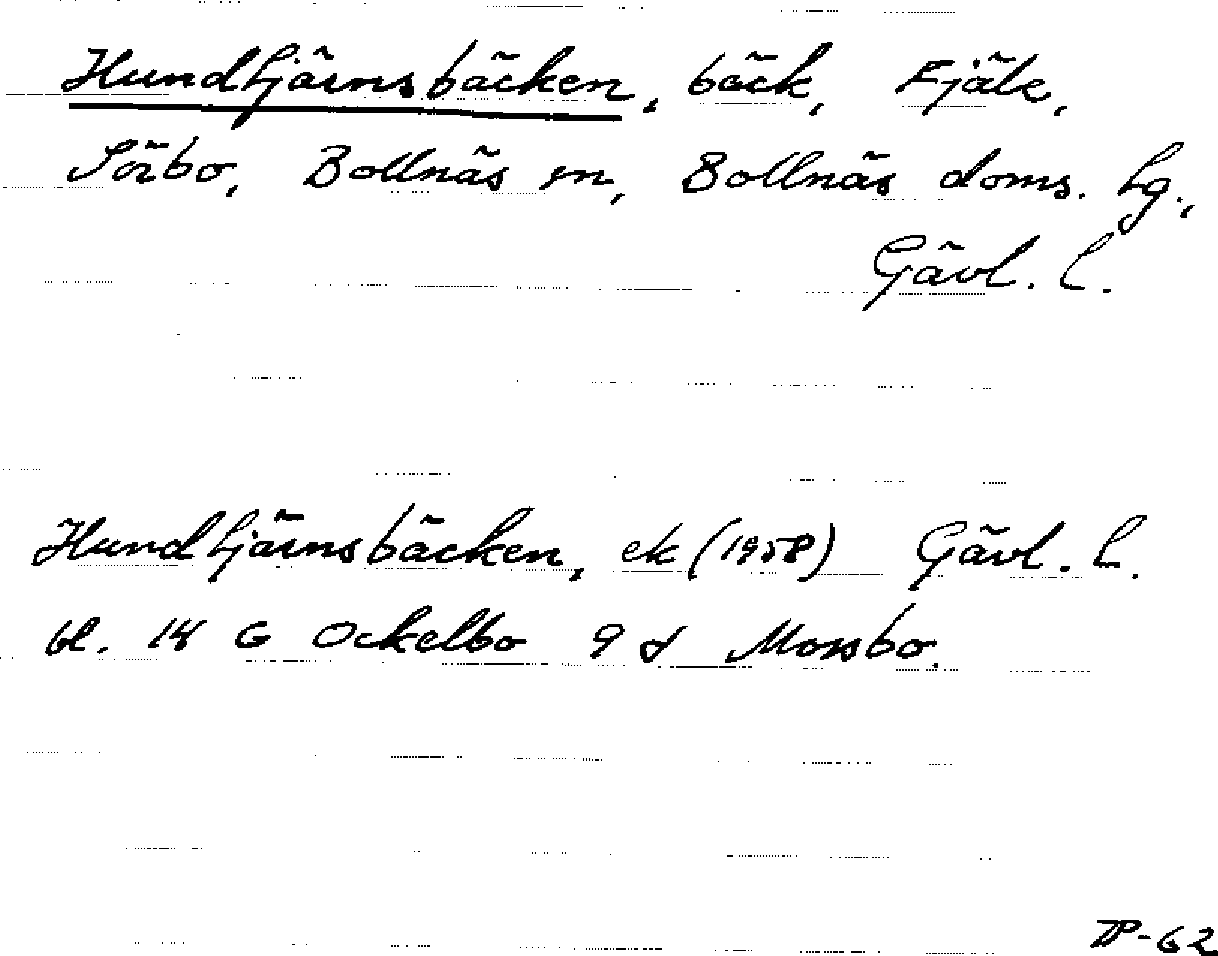 Hundtjärnsbäcken, bäck, Fjäle,
Sörbo, Bollnäs sn, Bollnäs doms. tg.,
Gävl. l.
Hundtjärnsbäcken, ek (1958) Gävl. l.
bl. 14 G Ockelbo 9 d Mossbo.
-62